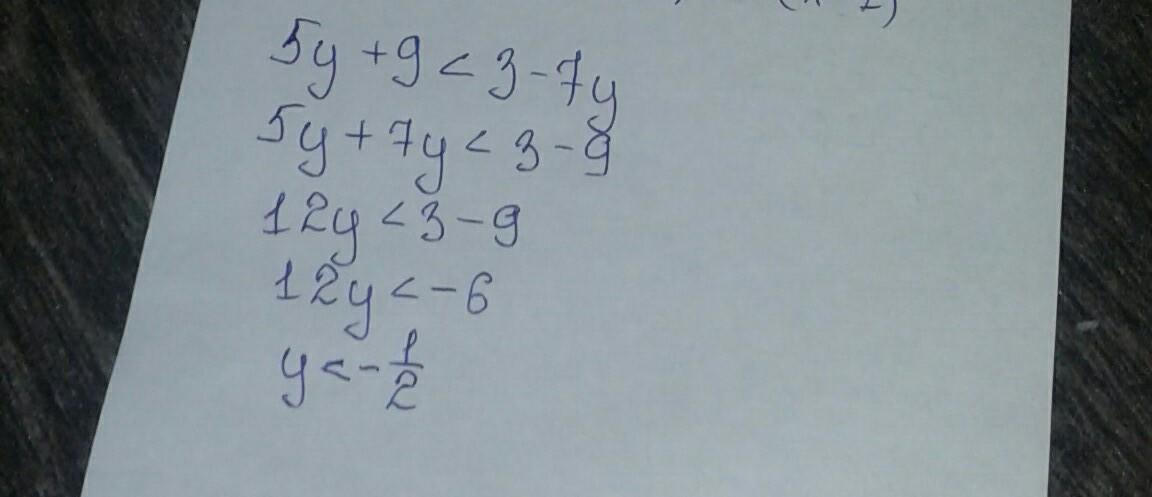 5y + 9 < 3 - 7y
5y + 7y < 3 - 9
12y < 3 - 9
12y < - 6
y < - 1/2